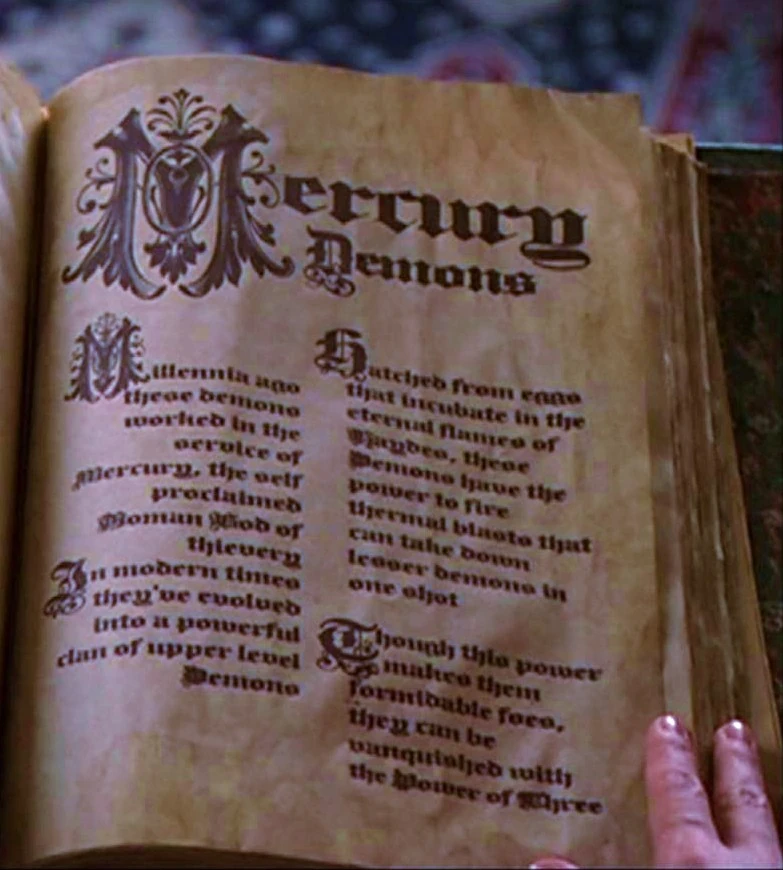 Mercury
Demons
Millennia ago
these demons
worked in the
service of
Mercury, the self
proclaimed
Woman God of
thievery
In modern times
they've evolved
into a powerful
clan of upper level
Demons
Hatched from eggs
that incubate in the
eternal flames of
Haydes, these
Demons have the
power to fire
thermal blasts that
can take down
lesser demons in
one shot
Though this power
makes them
formidable foes,
they can be
vanquished with
the Power of Three